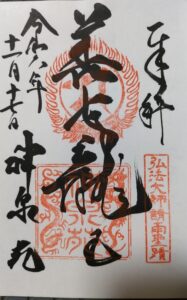 奉拝
弘法大師請雨霊蹟
善女龍王
令和 年
十一月十七日
神泉苑